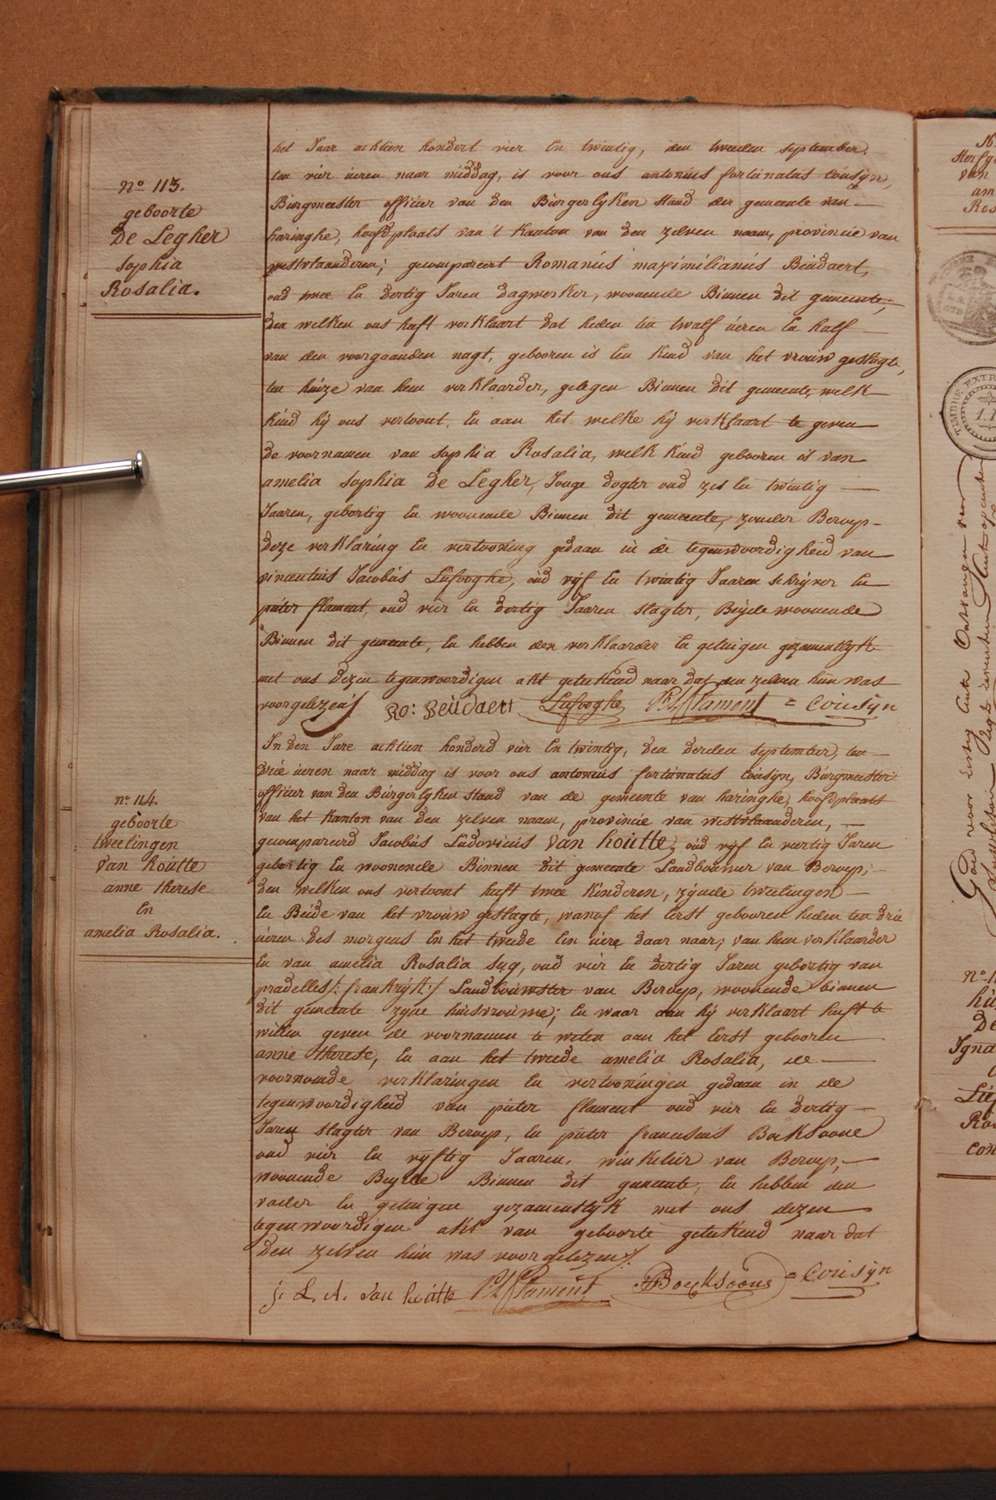 No 113.
geboorte
De Legher
Sophia
Rosalia.
het Jaar achtien hondert vier En twintig, den tweeden september
ten vier ueren naar middag, is voor ons antonius fortunatus Cousÿn,
Burgmeester officier van den Burgerlyken stand der gemeente van
haringhe, hoofdplaats van 't Kanton van den zelven naam, provincie van
westvlaanderen; gecompareert Romanus maximilianus Beudaert,
oud twee En dertig Jaren dagwerker, woonende Binnen dit gemeente,
den welken ons heeft verklaart dat heden ten twalf ueren En half
van den voorgaanden nagt, gebooren is Een Kind van het vrouw geslagte,
ten huize van hem verklaarder, gelegen Binnen dit gemeente, welk
kind hÿ ons vertoont, En aan het welke hÿ verklaart te geven
de voornamen van sophia Rosalia, welk Kind gebooren is van
amelia Sophia De Legher, Jonge dogter oud zes En twintig
Jaaren, gebortig En woonende Binnen dit gemeente, zonder Beroep
deze verklaring En vertooning gedaan in de tegenwoordigheid van
vincentius Jacobus Lafooghe, oud vÿf En twintig Jaaren schrÿver En
pieter flament, oud vier En dertig Jaaren slagter, Beÿde woonende
Binnen dit gemeente, En hebben den verklaarder En getuigen gezamentlÿk
met ons dezen tegenwoordigen akt geteekend naar dat den zelven hun was
voorgelezen ./.
Ro: Beudaert Lafooghe P. J. Flament = Cousÿn
No 114.
geboorte
tweelingen
Van houtte
anne therese
En
amelia Rosalia.
In den Jare achtien honderd vier En twintig, den derden september, ten
drie ueren naar middag is voor ons antonius fortunatus Cousÿn, Burgmeester
officier van den Burgerlÿken stand van de gemeente van haringhe, hoofdplaats
van het Kanton van den zelven naam, provincie van westvlaanderen,
gecompareerd Jacobus Ludovicus Van houtte, oud vÿf En veertig Jaren
gebortig En woonende Binnen dit gemeente Landbouwer van Beroep,
den welken ons vertoont heeft twee Kinderen, zÿnde tweelingen
En Beide van het vrouw geslagte, wanof het Eerst gebooren heden ten drie
ueren des morgens En het tweede Een uere daar naar, van hem verklaarder
En van amelia Rosalia Sag, oud vier En dertig Jaren gebortig van
pradelles /: frankrÿk :/ Landbouwster van Beroep, woonende binnen
dit gemeente zÿne huisvrouwe; En waar aan hÿ verklaart heeft te
willen geven de voornamen te weten aan het Eerst gebooren
anne therese, En aan het tweede amelia Rosalia, de
voornoemde verklaringen En vertooningen gedaan in de
tegenwoordigheid van pieter flament oud vier En dertig
Jaren slagter van Beroep, En pieter franciscus Boeksoone
oud vier En vÿftig Jaaren, winkelier van Beroep,
woonende Beÿde Binnen dit gemeente, En hebben den
vader En getuigen gezamentlÿk met ons dezen
tegenwoordigen akt van geboorte geteekend naar dat
den zelven hun was voorgelezen ./.
j. L. A. Van houtte P. J. Flament Boecksoone = Cousÿn